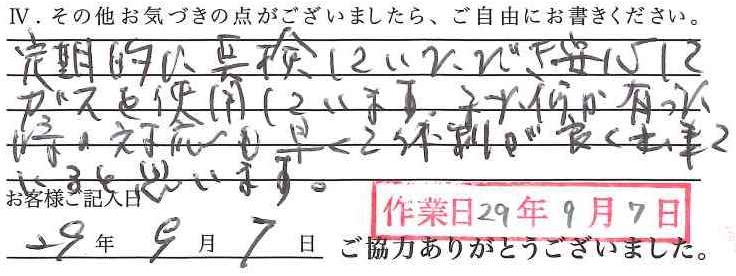 Ⅳ．その他お気づきの点がございましたら、ご自由にお書きください。
定期的に点検していただき安心して
ガスを使用しています。又何か有った
時の対応も早くて体制が良く出来て
いると思います。
お客様ご記入日
29年 9月 7日
作業日29年9月7日
ご協力ありがとうございました。